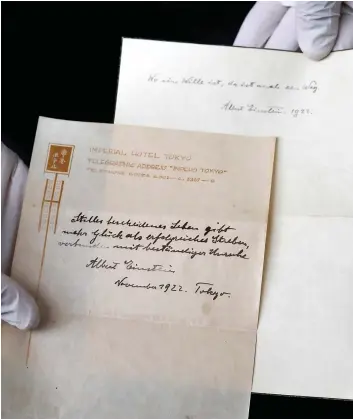 Wo ein Wille ist, da ist auch ein Weg.
Albert Einstein. 1922.
IMPERIAL HOTEL TOKYO
TELEGRAPHIC ADDRESS "IMPEHO TOKYO"
Stilles bescheidenes Leben gibt
mehr Glück als erfolgreiches Streben,
verbunden mit beständiger Unruhe.
Albert Einstein
November 1922. Tokyo.